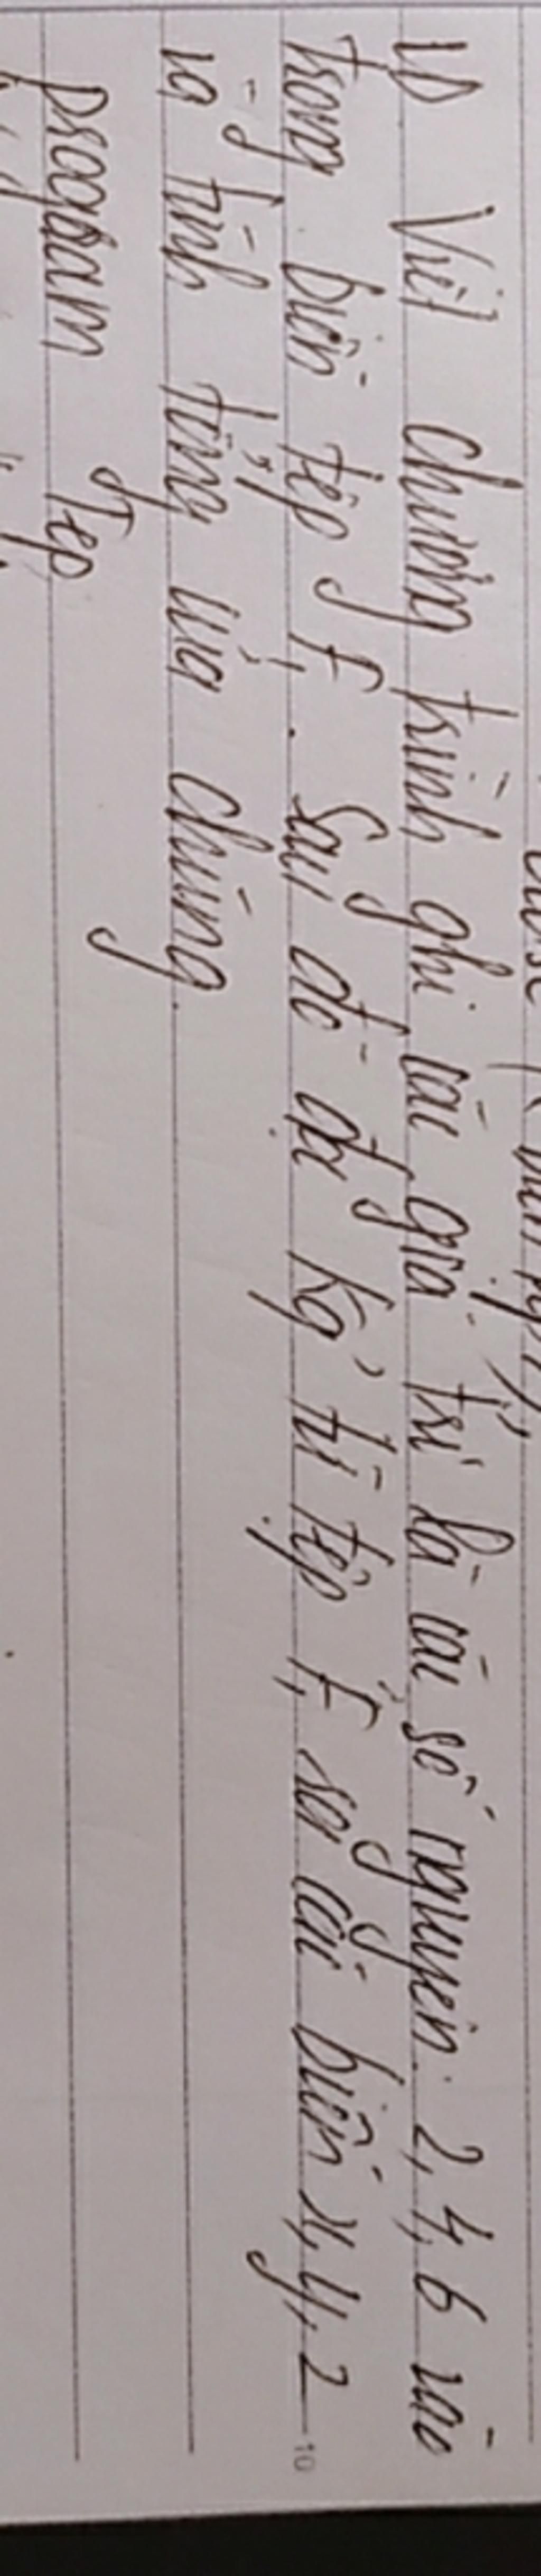 VD Viết chương trình ghi các giá trị là các số nguyên: 2, 4, 6 vào
trong biến tệp f. Sau đó đọc kq từ tệp f, ra các biến x, y, z
và tính tổng của chúng.
program Tep